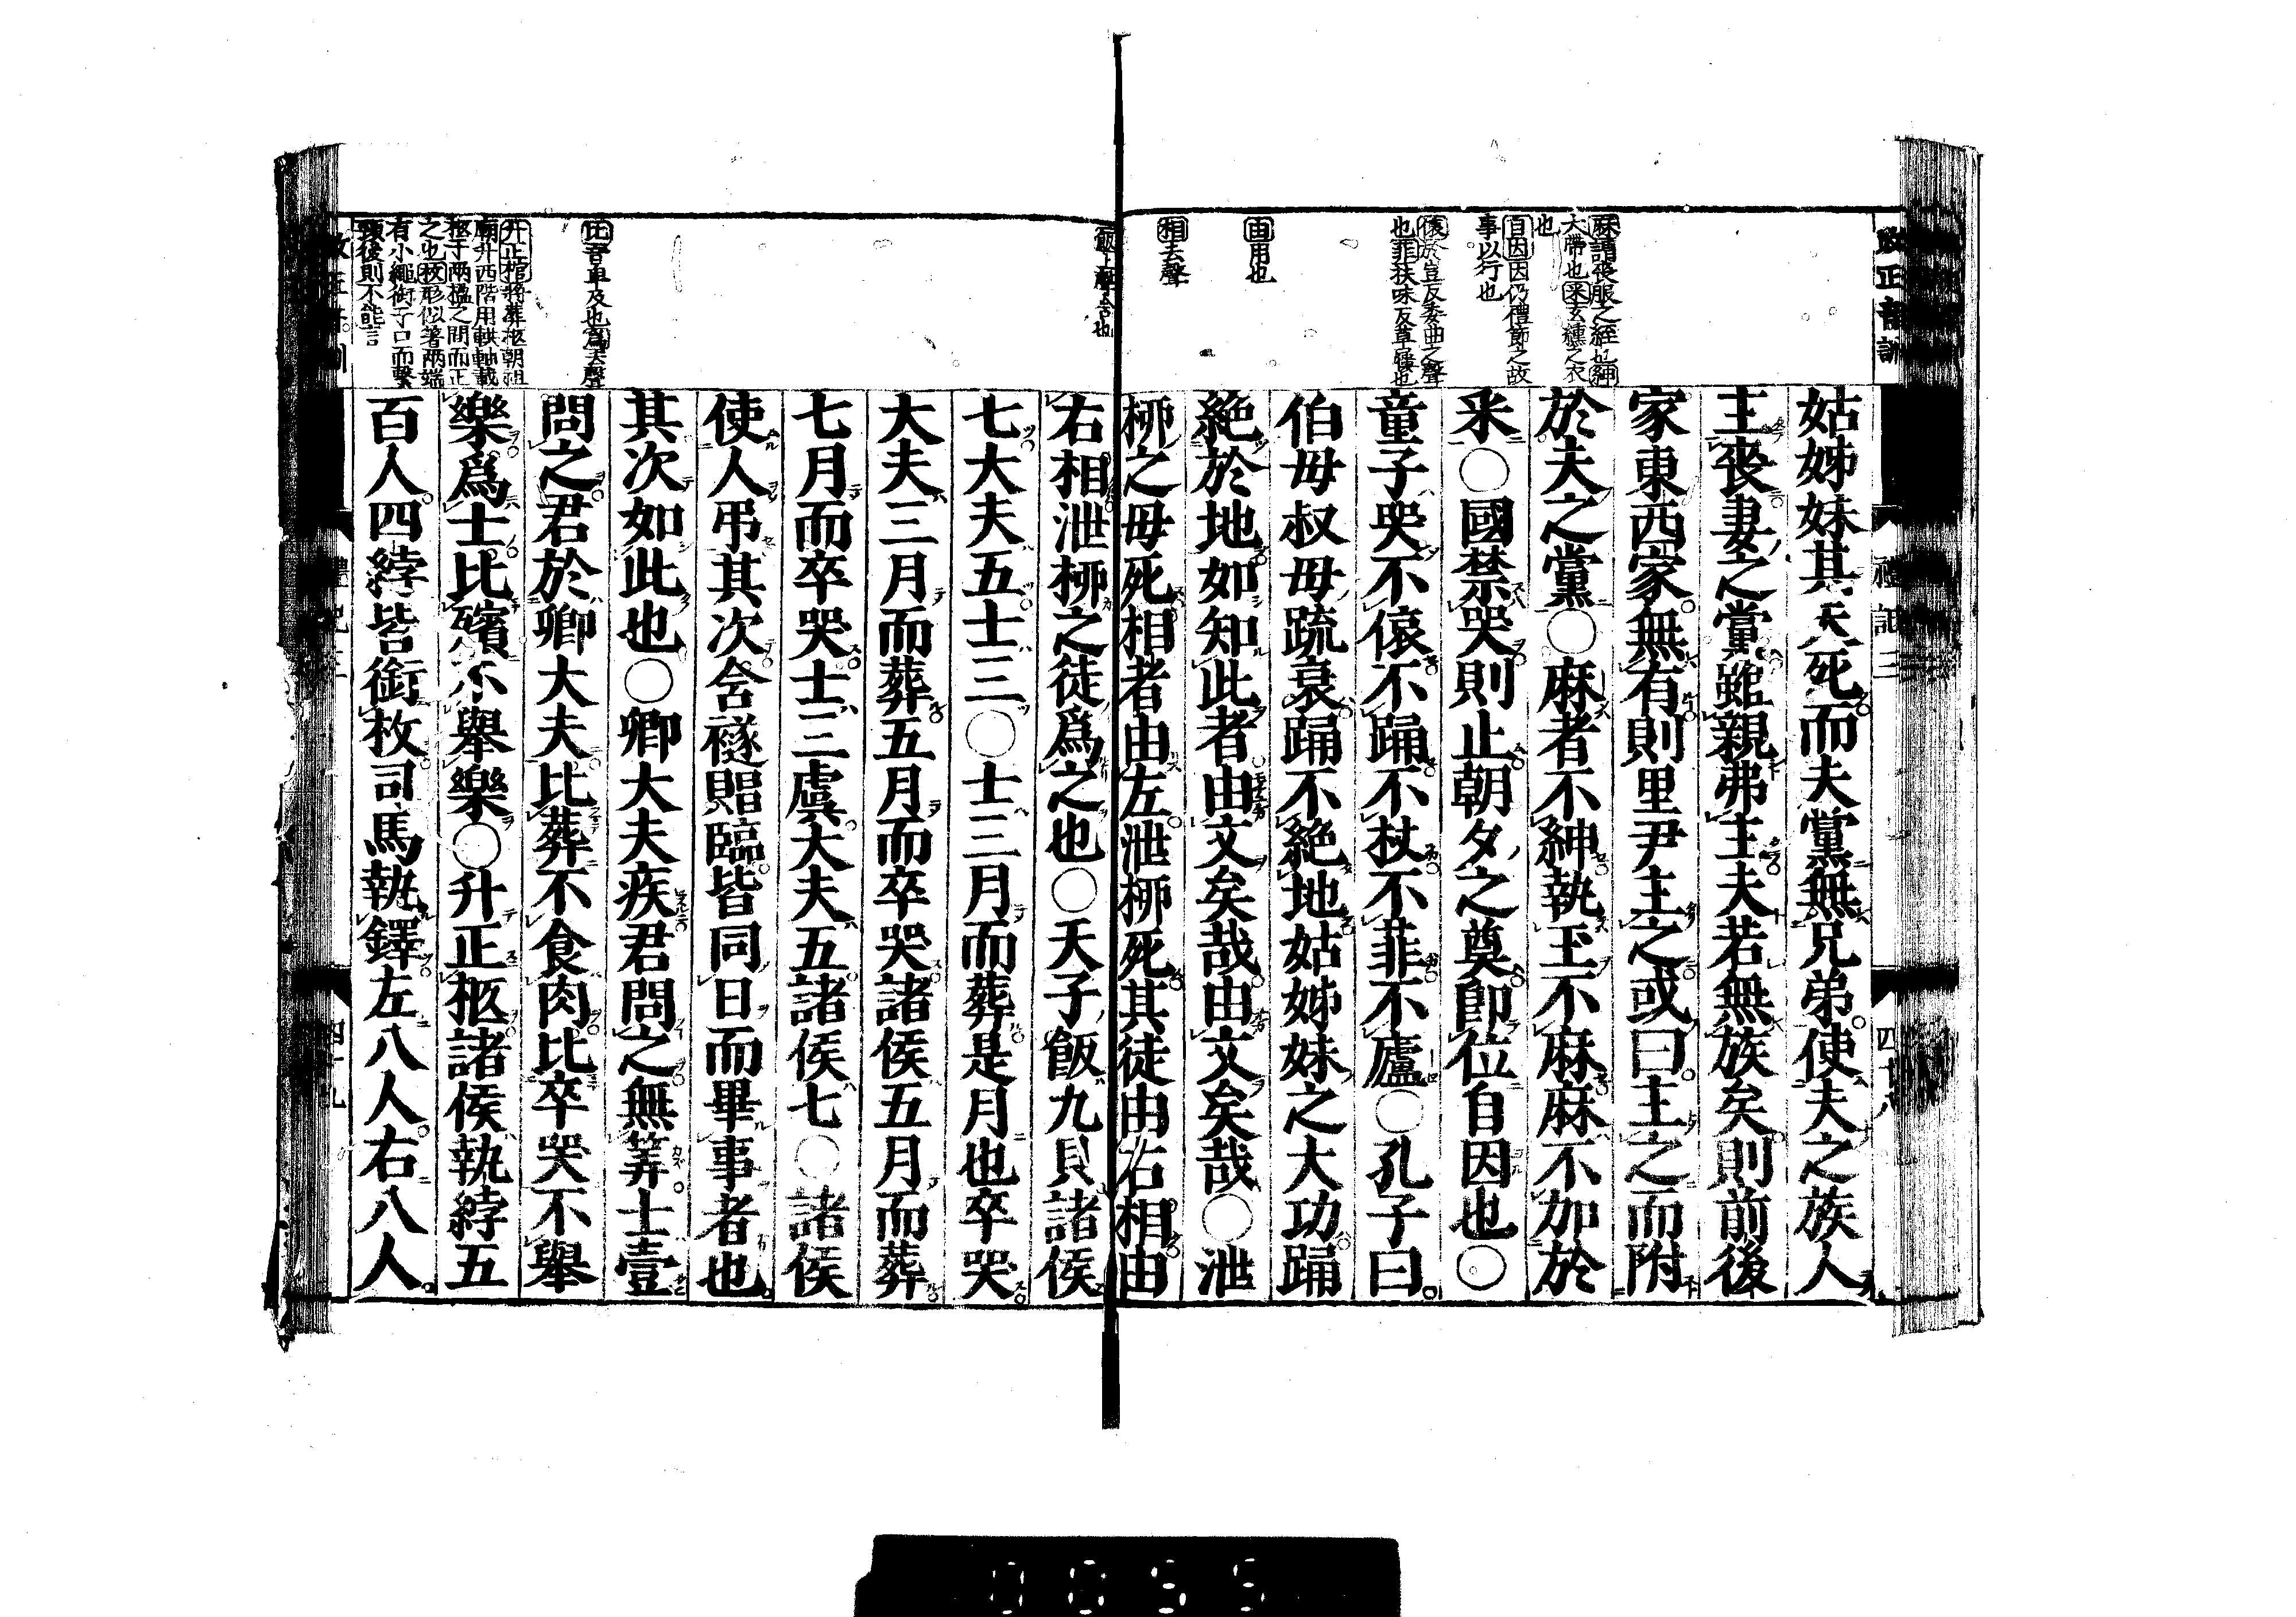 姑姊妹其夫死而夫黨無兄弟使夫之族人
主喪妻之黨雖親弗主夫若無族矣則前後
家東西家無有則里尹主之或曰主之而附
於夫之黨○麻者不紳執玉不麻麻不加於
釆○國禁哭則止朝夕之奠卽位自因也○
童子哭不偯不踊不杖不菲不廬○孔子曰
伯母叔母疏衰踊不絕地姑姊妹之大功踊
絕於地如知此者由文矣哉由文矣哉○泄
柳之母死相者由左泄柳死其徒由右相由
右相泄柳之徒爲之也○天子飯九貝諸侯
七大夫五士三○士三月而葬是月也卒哭
大夫三月而葬五月而卒哭諸侯五月而葬
七月而卒哭士三虞大夫五諸侯七○諸侯
使人弔其次含襚賵臨皆同日而畢事者也
其次如此也○卿大夫疾君問之無筭士壹
問之君於卿大夫比葬不食肉比卒哭不舉
樂爲士比殯不舉樂○升正柩諸侯執綍五
百人四綍皆銜枚司馬執鐸左八人右八人
麻謂喪服之絰也紳
大帶也釆玄纁之衣
也
自因因仍禮節之故
事以行也
偯於豈反委曲之聲
也菲扶味反草屨也
由用也
相去聲
飯上聲含也
比音卑及也爲去聲
升正棺將葬柩朝祖
廟升西階用輁軸載
柩于兩楹之間而正
之也枚形似箸兩端
有小繩銜于口而繫
頸後則不能言
禮記三
四十八
四十九
0055